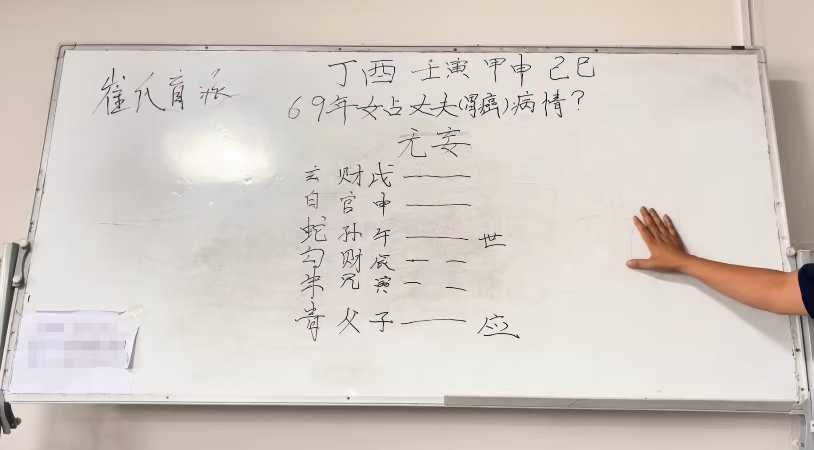 崔氏育派
丁酉 壬寅 甲申 己巳
69年女占丈夫(胃癌)病情?
无妄
玄 财戌
白 官申
蛇 孙午 世
勾 财辰
朱 兄寅
青 父子 应